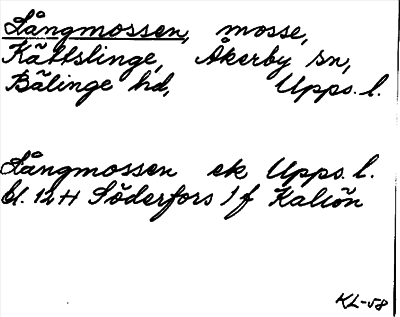 Långmossen, mosse,
Kättslinge, Åkerby sn,
Bälinge hd, Upps. l.
Långmossen ek Upps. l.
bl. 12 H Söderfors 1 f Kalvön
KL-58